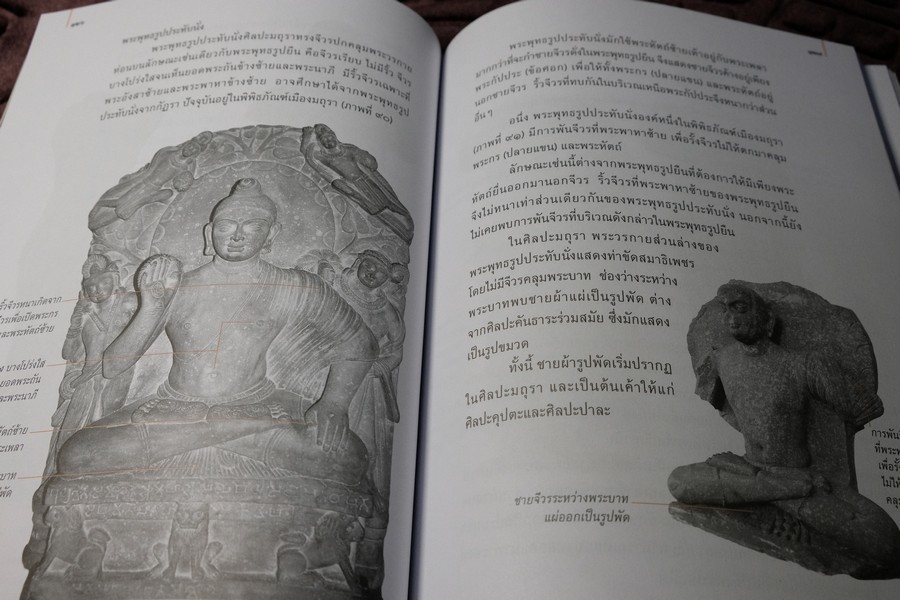 พระพุทธรูปประทับนั่ง
พระพุทธรูปประทับนั่งศิลปะมถุราทรงจีวรปกคลุมพระวรกาย
ท่อนบนลักษณะเช่นเดียวกับพระพุทธรูปยืน คือจีวรเรียบ ไม่มีริ้ว จีวร
บางโปร่งใสจนเห็นยอดพระถันข้างซ้ายและพระนาภี มีริ้วจีวรเฉพาะที่
พระอังสาซ้ายและพระพาหาข้างซ้าย อาจศึกษาได้จากพระพุทธรูป
ประทับนั่งจากกัฏรา ปัจจุบันอยู่ในพิพิธภัณฑ์เมืองมถุรา (ภาพที่ ๙๐)
ริ้วจีวรหนาเกิดจาก
วรเพื่อเปิดพระกร
และพระหัตถ์ซ้าย
บางโปร่งใส
ยอดพระถัน
และพระนาภี
หัตถ์ซ้าย
ระเพลา
บาท
พัด
พระพุทธรูปประทับนั่งมักใช้พระหัตถ์ซ้ายเท้าอยู่กับพระเพลา
มากกว่าที่จะกำชายจีวรดั่งในพระพุทธรูปยืน จึงแสดงชายจีวรค้างอยู่เพียง
พระกัปประ (ข้อศอก) เพื่อให้ทั้งพระกร (ปลายแขน) และพระหัตถ์อยู่
นอกชายจีวร ริ้วจีวรที่ทบกันในบริเวณเหนือพระกัปประจึงหนากว่าส่วน
อื่นๆ
อนึ่ง พระพุทธรูปประทับนั่งองค์หนึ่งในพิพิธภัณฑ์เมืองมถุรา
(ภาพที่ ๙๑) มีการพันจีวรที่พระพาหาซ้าย เพื่อรั้งจีวรไม่ให้ตกมาคลุม
พระกร (ปลายแขน) และพระหัตถ์
ลักษณะเช่นนี้ต่างจากพระพุทธรูปยืนที่ต้องการให้มีเพียงพระ
หัตถ์ยื่นออกมานอกจีวร ริ้วจีวรที่พระพาหาซ้ายของพระพุทธรูปยืน
จึงไม่หนาเท่าส่วนเดียวกันของพระพุทธรูปประทับนั่ง นอกจากนี้ยัง
ไม่เคยพบการพันจีวรที่บริเวณดังกล่าวในพระพุทธรูปยืน
ในศิลปะมถุรา พระวรกายส่วนล่างของ
พระพุทธรูปประทับนั่งแสดงท่าขัดสมาธิเพชร
โดยไม่มีจีวรคลุมพระบาท ช่องว่างระหว่าง
พระบาทพบชายผ้าแผ่เป็นรูปพัด ต่าง
จากศิลปะคันธาระร่วมสมัย ซึ่งมักแสดง
เป็นรูปขมวด
ทั้งนี้ ชายผ้ารูปพัดเริ่มปรากฏ
ในศิลปะมถุรา และเป็นต้นเค้าให้แก่
ศิลปะคุปตะและศิลปะปาละ
ชายจีวรระหว่างพระบาท
แผ่ออกเป็นรูปพัด
การพัน
ที่พระพ
เพื่อรั้
ไม่ให้
คลุ